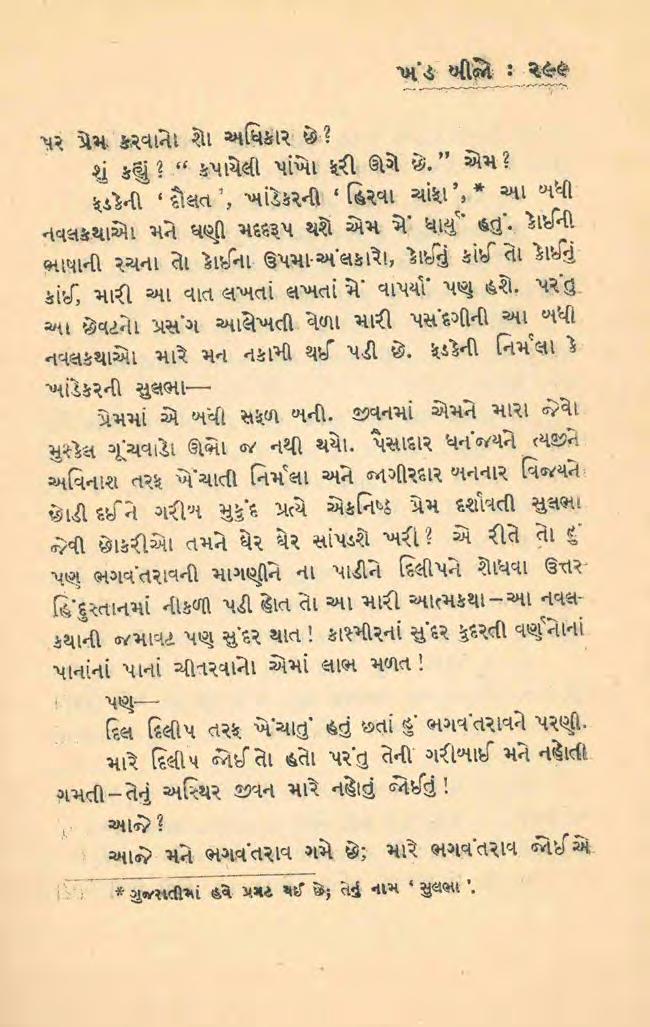 ખંડ બીજો : ૨૯૯
પર પ્રેમ કરવાનો શો અધિકાર છે?
શું કહ્યું? “ કપાયેલી પાંખો ફરી ઊગે છે.” એમ?
ફડકેની ‘ દૌલત ’, ખાંડેકરની ‘ હિરવા ચાંફા ’, * આ બધી
નવલકથાઓ મને ઘણી મદદરૂપ થશે એમ મેં ધાર્યું હતું. કોઈની
ભાષાની રચના તો કોઈના ઉપમા-અલંકારો, કોઈનું કાંઈ તો કોઈનું
કાંઈ, મારી આ વાત લખતાં લખતાં મેં વાપર્યાં પણ હશે. પરંતુ
આ છેવટનો પ્રસંગ આલેખતી વેળા મારી પસંદગીની આ બધી
નવલકથાઓ મારે મન નકામી થઈ પડી છે. ફડકેની નિર્મલા કે
ખાંડેકરની સુલભા—
પ્રેમમાં એ બધી સફળ બની. જીવનમાં એમને મારા જેવો
મુશ્કેલ ગૂંચવાડો ઊભો જ નથી થયો. પૈસાદાર ધનંજયને ત્યજીને
અવિનાશ તરફ ખેંચાતી નિર્મલા અને જાગીરદાર બનનાર વિજયને
છોડી દઈને ગરીબ મુકુંદ પ્રત્યે એકનિષ્ઠ પ્રેમ દર્શાવતી સુલભા
જેવી છોકરીઓ તમને ઘેર ઘેર સાંપડશે ખરી? એ રીતે તો હું
પણ ભગવંતરાવની માગણીને ના પાડીને દિલીપને શોધવા ઉત્તર
હિંદુસ્તાનમાં નીકળી પડી હોત તો આ મારી આત્મકથા – આ નવલ-
કથાની જમાવટ પણ સુંદર થાત! કાશ્મીરનાં સુંદર કુદરતી વર્ણનોનાં
પાનાંનાં પાનાં ચીતરવાનો એમાં લાભ મળત!
પણ—
દિલ દિલીપ તરફ ખેંચાતું હતું છતાં હું ભગવંતરાવને પરણી.
મારે દિલીપ જોઈતો હતો પરંતુ તેની ગરીબાઈ મને નહોતી
ગમતી – તેનું અસ્થિર જીવન મારે નહોતું જોઈતું!
આજે?
આજે મને ભગવંતરાવ ગમે છે; મારે ભગવંતરાવ જોઈએ
* ગુજરાતીમાં હવે પ્રગટ થઈ છે; તેનું નામ ‘ સુલભા ’.